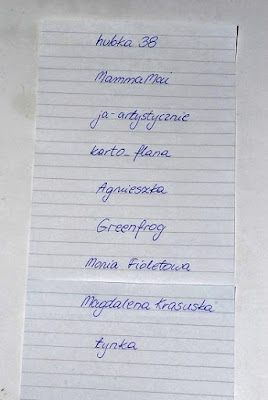 hubka 38
MammaMai
ja-artystycznie
karto_flana
Agnieszka
Greenfrog
Monia Fioletowa
Magdalena Krasuska
Łynka